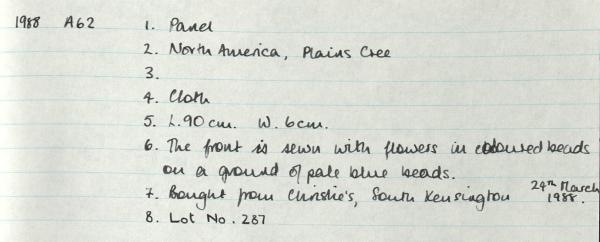 1988 A62 1. Panel
2. North America, Plains Cree
3.
4. Cloth
5. L. 90 cm. W. 6 cm.
6. The front is sewn with flowers in coloured beads
on a ground of pale blue beads.
7. Bought from Christie's, South Kensington 24th March 1988.
8. Lot No. 287